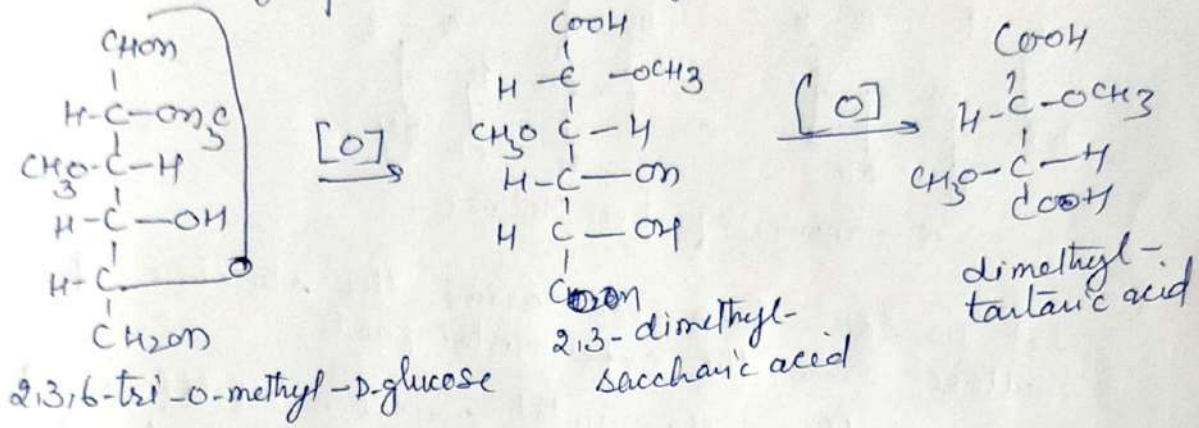 CHOH
H-C-OH3C
CH3O-C-H
H-C-OH
H-C
CH2OH
2,3,6-tri-O-methyl-D-glucose
[O]
COOH
H-C-OCH3
CH3O C-H
H-C-OH
H C-OH
COOH
2,3-dimethyl-
saccharic acid
[O]
COOH
H-C-OCH3
CH3O-C-H
COOH
dimethyl-
tartaric acid